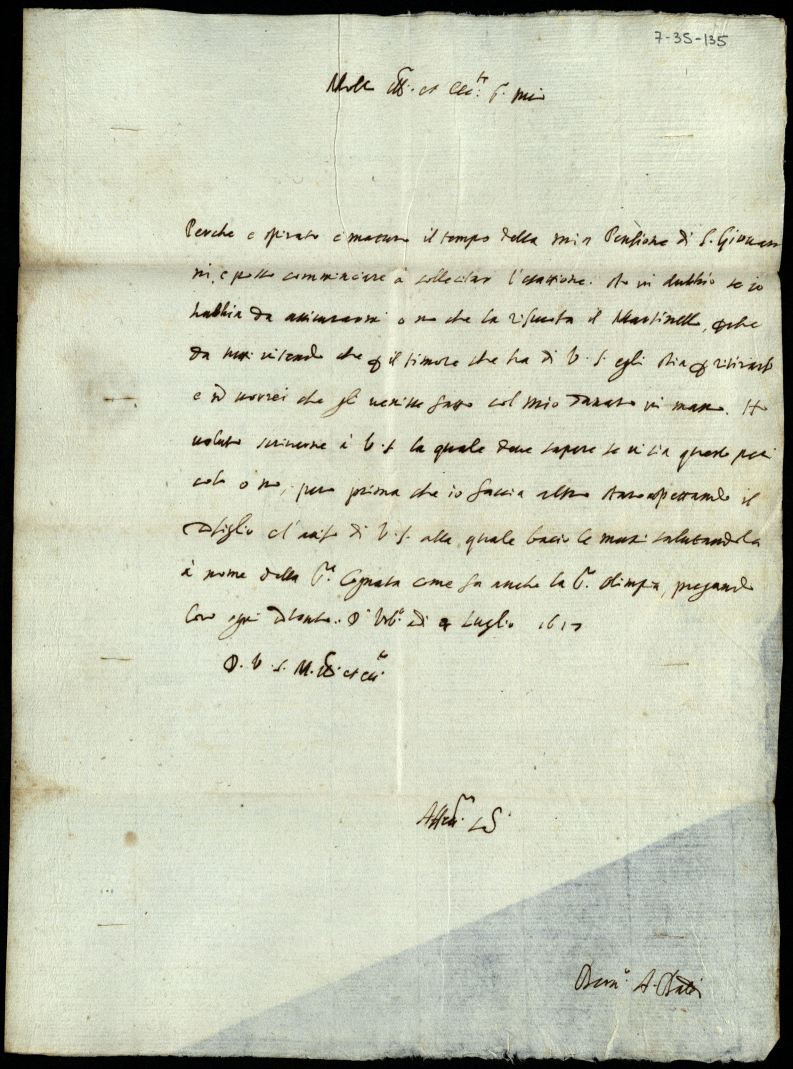 7-35-135
Molto Ill. et Ecc. S. mio
Perche è spirato e maturo il tempo della mia Pensione di S. Giovan
ni, e posso comminciare à sollecitar l'esattione. sto in dubbio se io
habbia da assicurarmi o no che la riscuota il Martinello, perche
da tutti intendo che per il timore che ha di V. S. egli stia per ritirarsi
e non vorrei che gli venisse fatto col mio danaro in mano. Ho
voluto scriverne à V. S. la quale deve sapere se vi sia questo peri
colo o no, però prima che io faccia altro starò aspettando il
consiglio e l'aviso di V. S. alla quale bacio le mani salutandola
à nome della S.ra Cognata come fa anche la S.ra Olimpia, pregando
ogni contento. D' Urb.o Luglio 1617
D. V. S. M. Ill. et Ecc.
Aff.mo
Bern.o A. Baldi